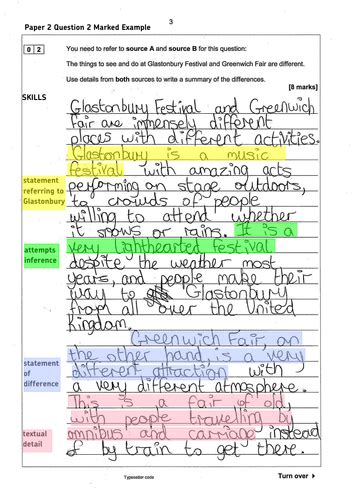 3
Paper 2 Question 2 Marked Example
0 2
You need to refer to source A and source B for this question:
The things to see and do at Glastonbury Festival and Greenwich Fair are different.
Use details from both sources to write a summary of the differences.
[8 marks]
SKILLS
Glastonbury Festival and Greenwich
Fair are immensely different
places with different activities.
Glastonbury is a music
festival with amazing acts
statement
referring to
Glastonbury
performing on stage outdoors,
to crowds of people
willing to attend whether
it snows or rains. It is a
attempts
inference
very lighthearted festival
despite the weather most
years, and people make their
way to Glastonbury
from all over the United
Kingdom.
Greenwich Fair, on
the other hand, is a very
statement
of
difference
different attraction with
a very different atmosphere.
This is a fair of old,
with people travelling by
textual
detail
omnibus and carriang instead
of by train to get there.
Typesetter code
Turn over